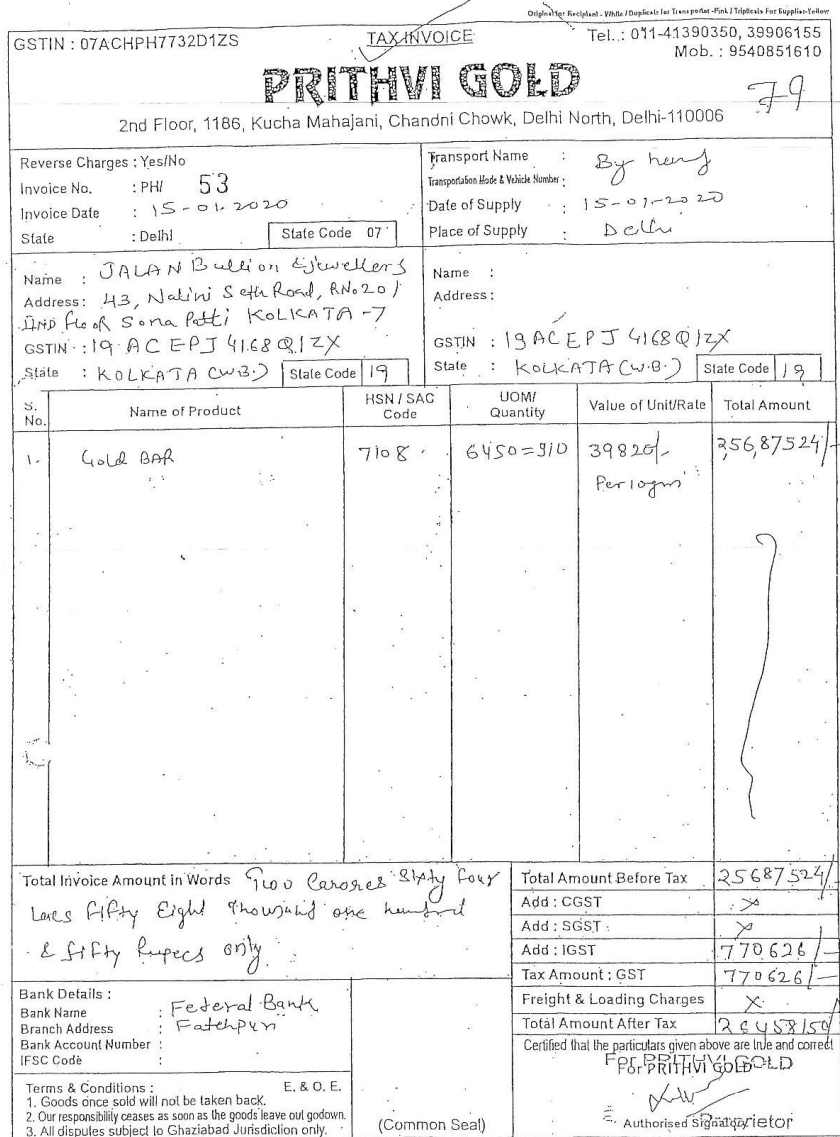 Original for Recipient - White / Duplicate for Transporter -Pink / Triplicate For Supplier-Yellow
GSTIN : 07ACHPH7732D1ZS
TAX INVOICE
Tel..: 011-41390350, 39906155
Mob. : 9540851610
PRITHVI GOLD
79
2nd Floor, 1186, Kucha Mahajani, Chandni Chowk, Delhi North, Delhi-110006
Reverse Charges : Yes/No
Invoice No. : PH/ 53
Invoice Date : 15-01-2020
State : Delhi State Code 07
Transport Name : By hand
Transportation Mode & Vehicle Number :
Date of Supply : 15-01-2020
Place of Supply : Delhi
Name : JALAN Bullion & Jewellers
Address: 43, Nalini Seth Road, RNo201
IInd floor Sona Patti KOLKATA -7
GSTIN : 19 ACEPJ 4168Q1ZX
State : KOLKATA (W.B.) State Code 19
Name :
Address :
GSTIN : 19ACEPJ4168Q1ZX
State : KOLKATA (W.B.) State Code 19
S. No. Name of Product HSN / SAC Code UOM/ Quantity Value of Unit/Rate Total Amount
1. Gold BAR 7108 6450=910 39820/- 2,56,87524/-
Per 10gm
Total Invoice Amount in Words Two Carores Sixty four
Lacs fifty Eight Thousand one hundred
& fifty Rupees only
Total Amount Before Tax 25687524/-
Add : CGST x
Add : SGST : x
Add : IGST 770626/-
Tax Amount : GST 770626/-
Freight & Loading Charges x
Total Amount After Tax 26458150/
Bank Details :
Bank Name : Federal Bank
Branch Address : Fatehpuri
Bank Account Number :
IFSC Code :
Certified that the particulars given above are true and correct
For PRITHVI GOLD
For PRITHVI GOLD
Terms & Conditions : E. & O. E.
1. Goods once sold will not be taken back.
2. Our responsibility ceases as soon as the goods leave out godown.
3. All disputes subject to Ghaziabad Jurisdiction only.
(Common Seal)
Authorised Signatory
Proprietor